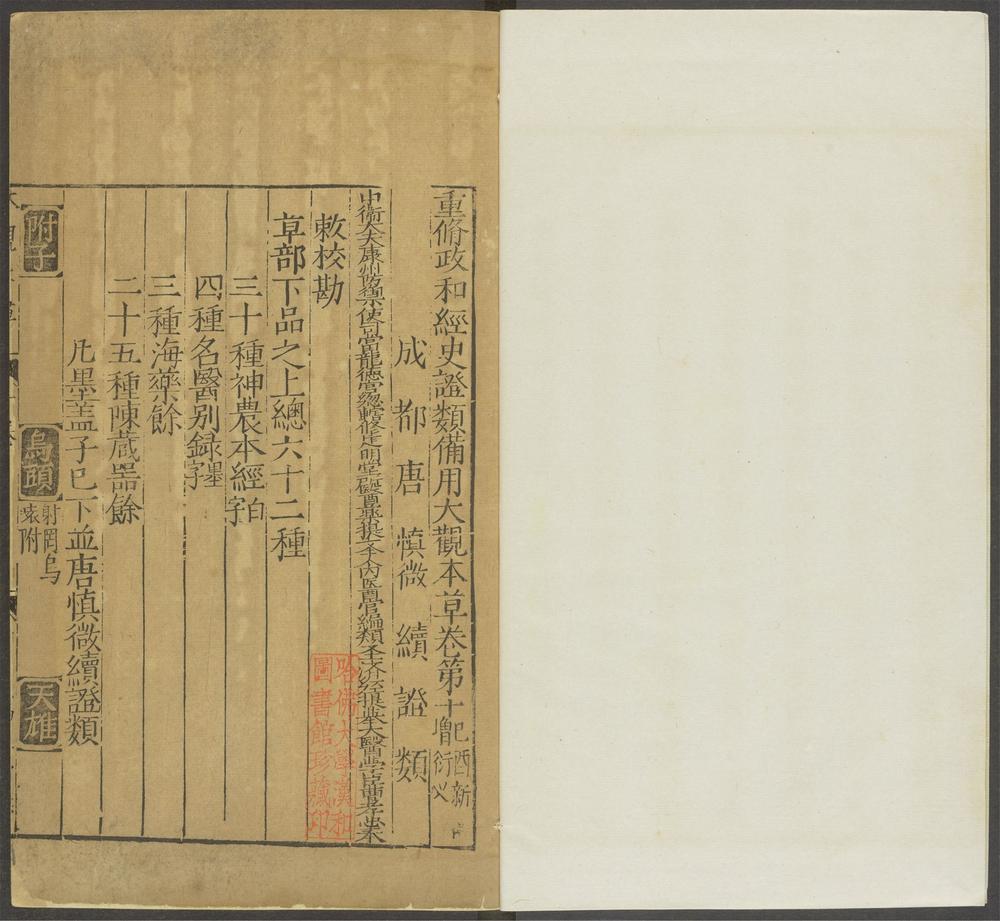 重脩政和經史證類備用大觀本草卷第十 己酉新增衍义
成都唐慎微續證類
中衛大夫康州防禦使句當龍德宮總轄修建明堂所醫藥提舉入內醫官編類圣济經提舉大醫学臣曹孝忠奉
敕校勘
草部下品之上總六十二種
三十種神農本經白字
四種名醫别録墨字
三種海藥餘
二十五種陳蔵噐餘
凡墨盖子已下並唐慎微續證類
附子
烏頭 射罔烏喙附
天雄
哈佛大學漢和圖書館珍藏印